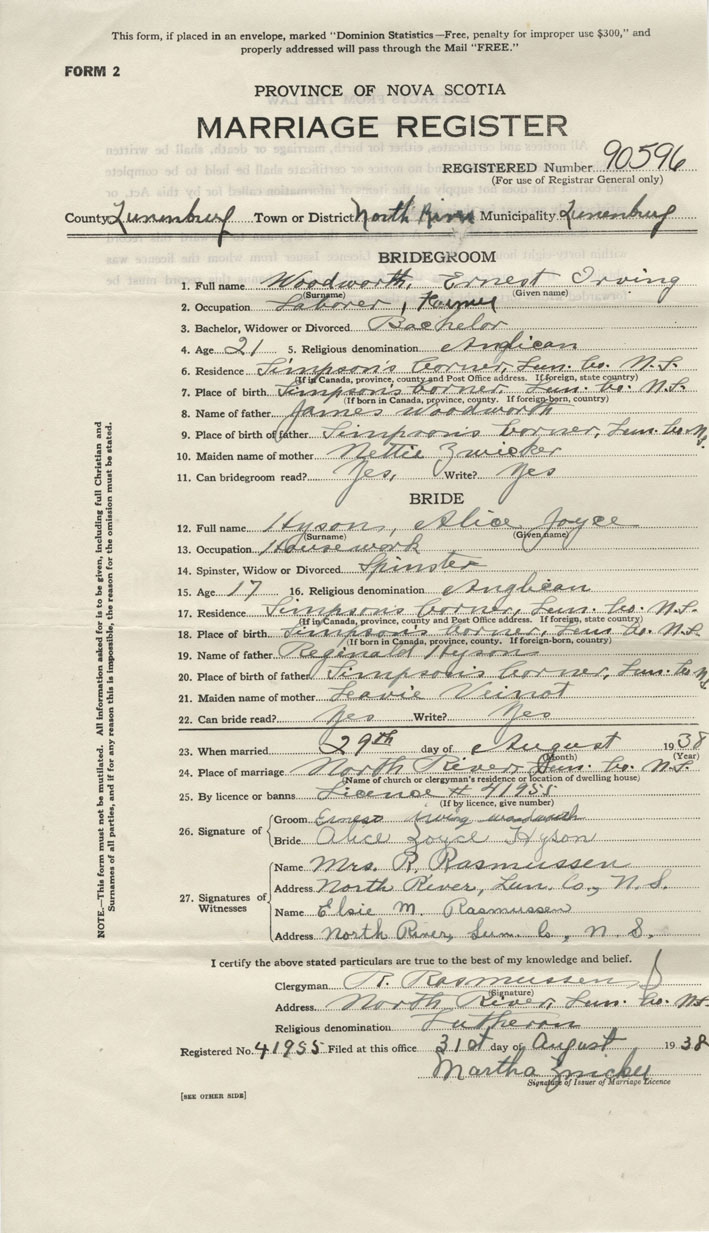 This form, if placed in an envelope, marked "Dominion Statistics—Free, penalty for improper use $300," and
properly addressed will pass through the Mail "FREE."
FORM 2
PROVINCE OF NOVA SCOTIA
MARRIAGE REGISTER
REGISTERED Number 90596
(For use of Registrar General only)
County Lunenburg Town or District North River Municipality Lunenburg
BRIDEGROOM
1. Full name Woodworth, Ernest Irving
(Surname) (Given name)
2. Occupation Laborer, Farmer
3. Bachelor, Widower or Divorced Bachelor
4. Age 21 5. Religious denomination Anglican
6. Residence Simpson's Corner, Lun. Co. N.S.
(If in Canada, province, county and Post Office address. If foreign, state country)
7. Place of birth Simpson's Corner, Lun. Co. N.S.
(If born in Canada, province, county. If foreign-born, country)
8. Name of father James Woodworth
9. Place of birth of father Simpson's Corner, Lun. Co. N.S.
10. Maiden name of mother Nettie Zwicker
11. Can bridegroom read? Yes, Write? Yes
BRIDE
12. Full name Hyson, Alice Joyce
(Surname) (Given name)
13. Occupation Housework
14. Spinster, Widow or Divorced Spinster
15. Age 17 16. Religious denomination Anglican
17. Residence Simpson's Corner, Lun. Co. N.S.
(If in Canada, province, county and Post Office address. If foreign, state country)
18. Place of birth Simpson's Corner, Lun. Co. N.S.
(If born in Canada, province, county. If foreign-born, country)
19. Name of father Reginald Hyson
20. Place of birth of father Simpson's Corner, Lun. Co. N.S.
21. Maiden name of mother Leavie Veinot
22. Can bride read? Yes Write? Yes
23. When married 29th day of August 1938
(Month) (Year)
24. Place of marriage North River, Lun. Co. N.S.
(Name of church or clergyman's residence or location of dwelling house)
25. By licence or banns Licence # 41955
(If by licence, give number)
26. Signature of
Groom Ernest Irving woodworth
Bride Alice Joyce Hyson
27. Signatures of Witnesses
Name Mrs. R. Rasmussen
Address North River, Lun. Co., N.S.
Name Elsie M. Rasmussen
Address North River, Lun. Co., N.S.
I certify the above stated particulars are true to the best of my knowledge and belief.
Clergyman R. Rasmussen
(Signature)
Address North River, Lun. Co. N.S.
Religious denomination Lutheran
Registered No. 41955 Filed at this office 31st day of August 1938
Martha
Signature of Issuer of Marriage Licence
[SEE OTHER SIDE]
NOTE.—This form must not be mutilated. All information asked for is to be given, including full Christian and
Surnames of all parties, and if for any reason this is impossible, the reason for the omission must be stated.